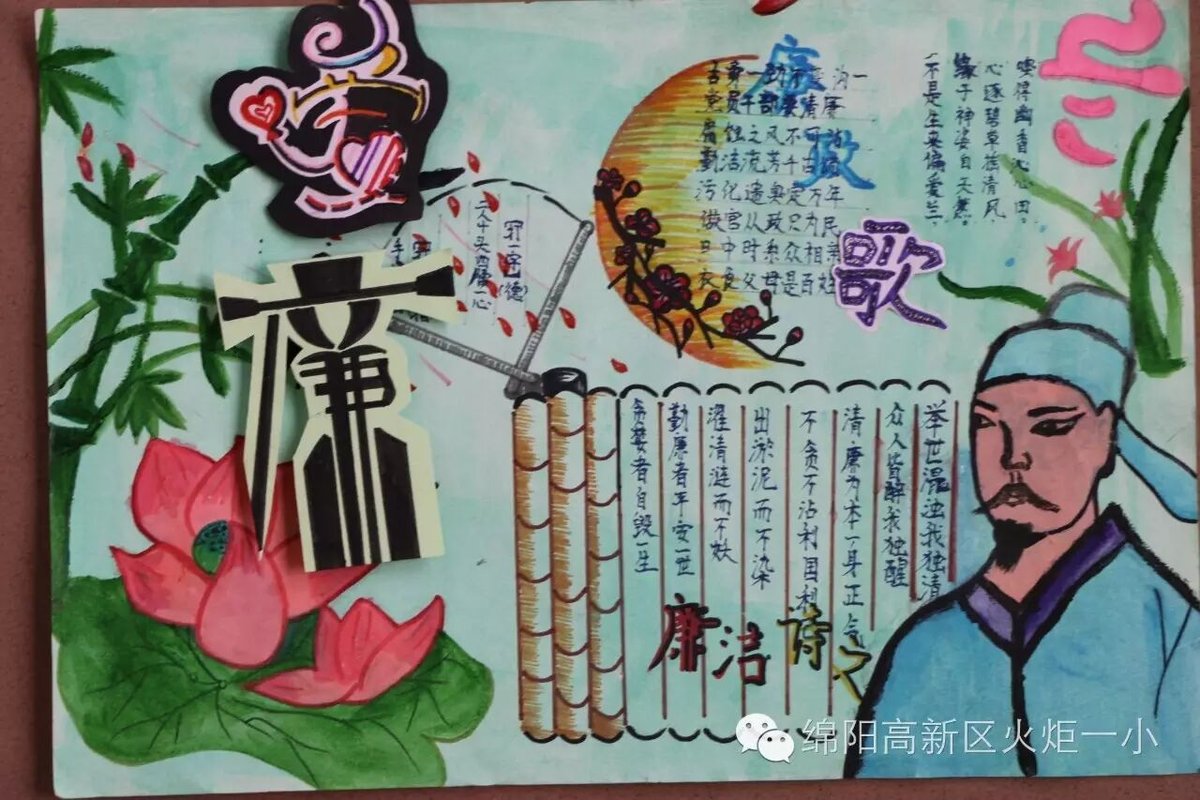 兰
不是生来偏爱兰，
缘于神姿自天意。
心逐碧草摇清风，
嗅得幽香沁心田。
廉政
歌
党员干部要清廉
腐蚀之风不可
勤洁流芳千古
污化遗臭定万年
做官从政只为民
日中时系众相亲
衣食父母是百姓
一字(德)
二人十头四
一心
廉
举世混浊我独清
众人皆醉我独醒
清廉为本一身正气
不贪不沾利国利
出淤泥而不染
濯清涟而不妖
勤廉者平安一世
贪婪者自毁一生
廉洁诗文
绵阳高新区火炬一小